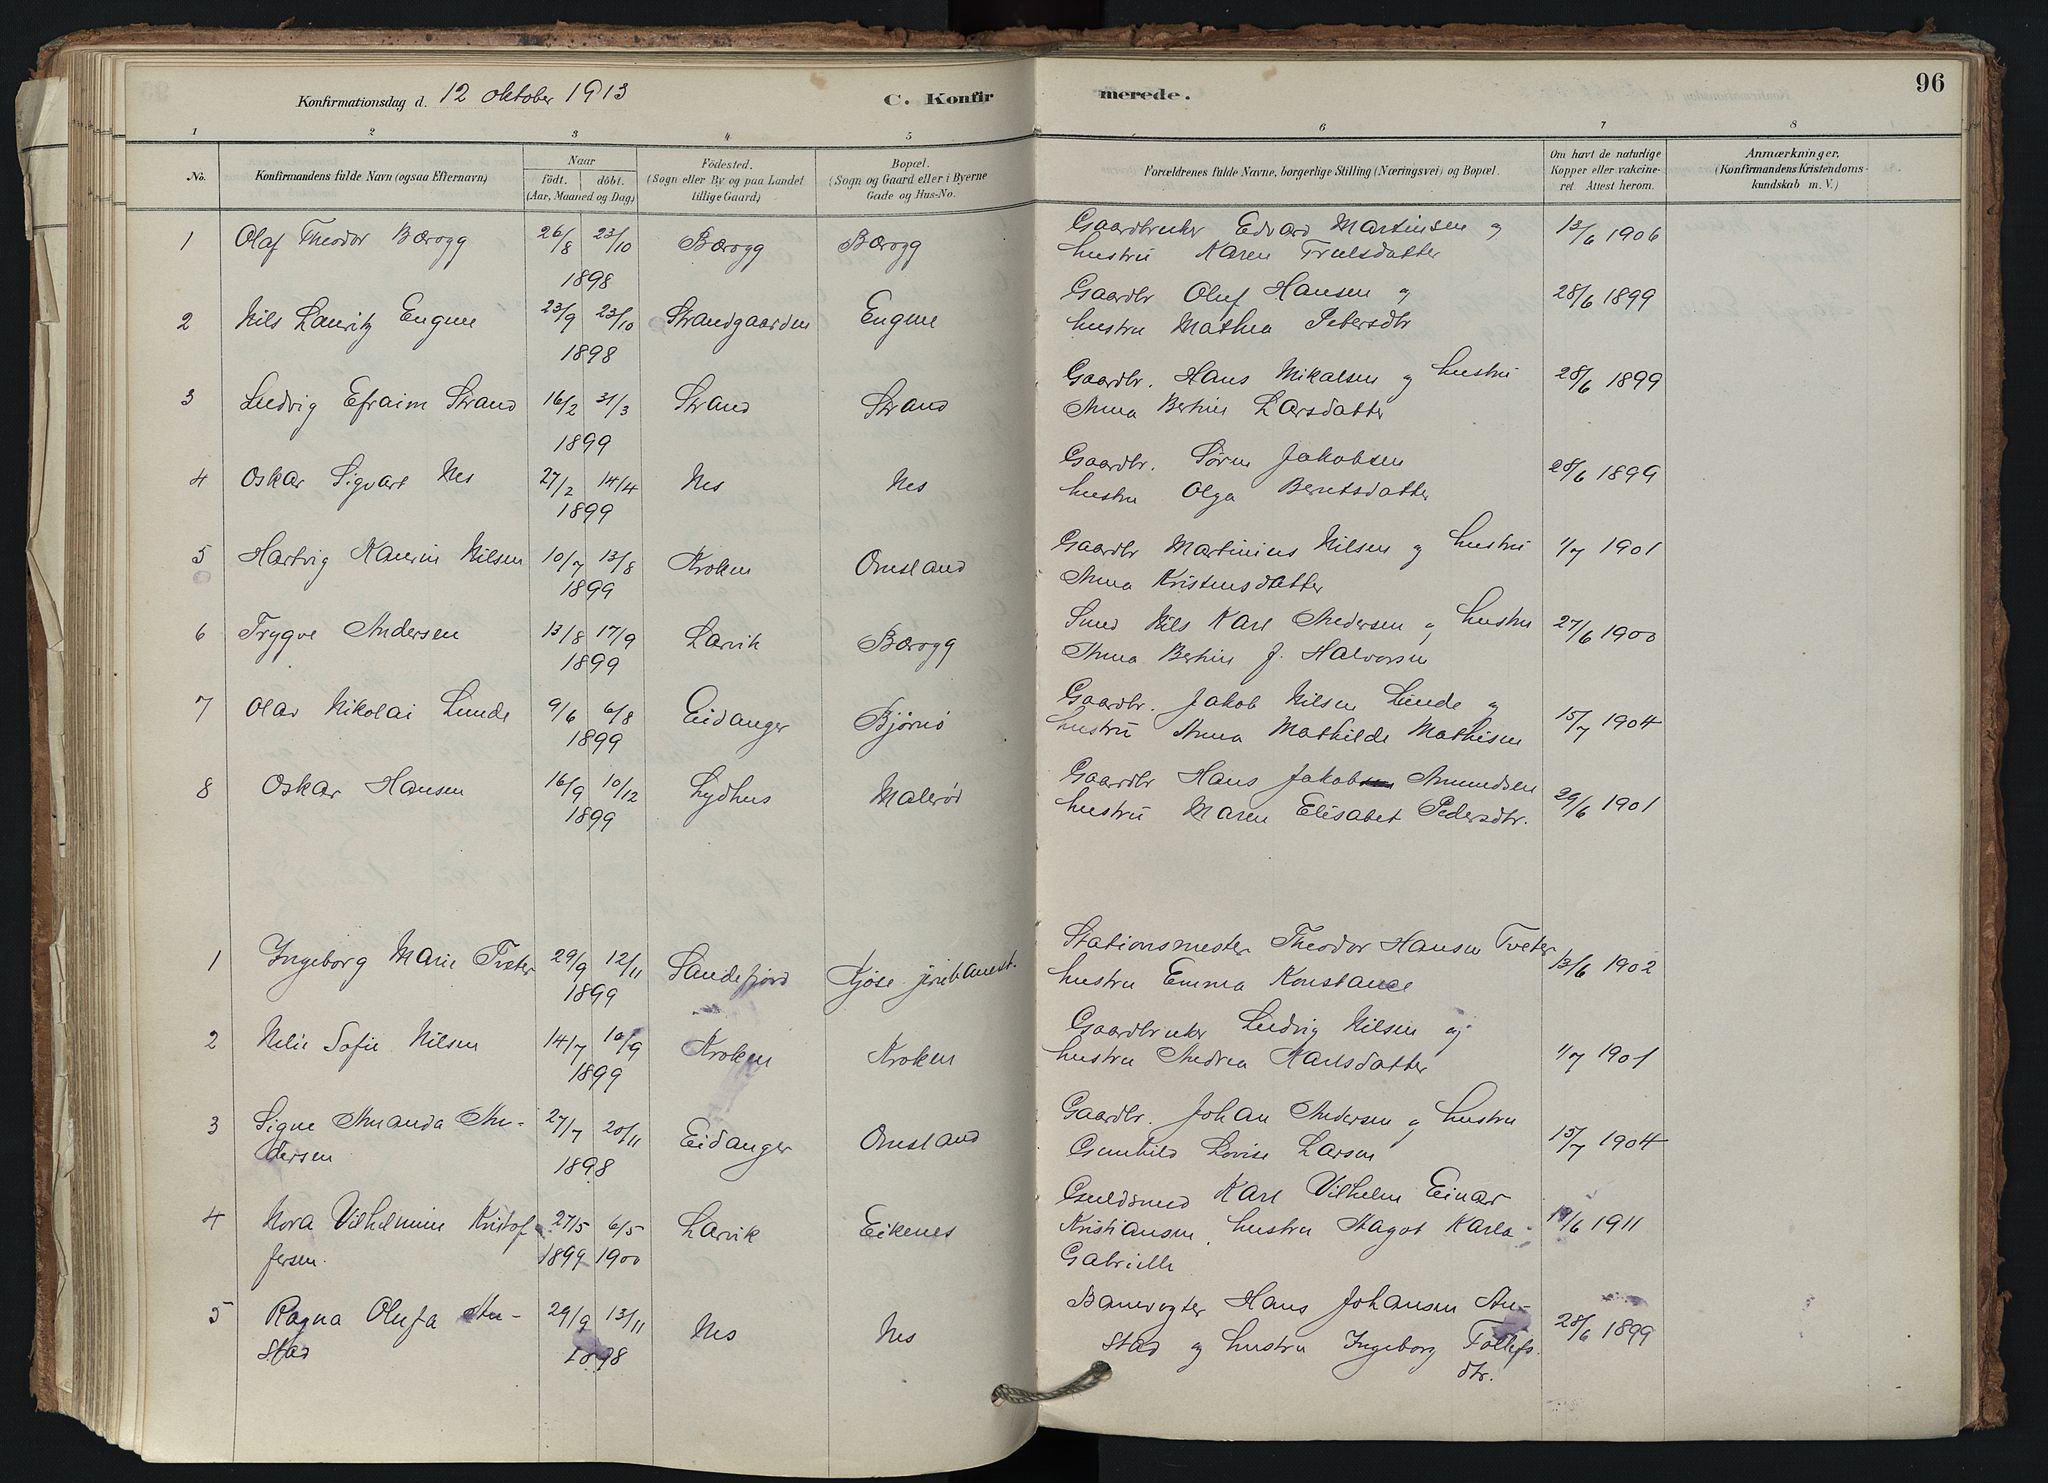 96
Konfirmationsdag d. 12 oktober 1913 C. Konfirmerede.
1 2 3 4 5 6 7 8
No.
Konfirmandens fulde Navn (ogsaa Efternavn)
Naar
født. døbt.
(Aar, Maaned og Dag)
Födested.
(Sogn eller By og paa Landet
tillige Gaard)
Bopæl.
(Sogn og Gaard eller i Byerne
Gade og Hus-No.
Forældrenes fulde Navne, borgerlige Stilling (Næringsvei) og Bopæl.
Om havt de naturlige
Kopper eller vakcine-
ret Attest herom.
Anmærkninger,
(Konfirmandens Kristendoms-
kundskab m. V.)
1 Olaf Theodor Bærogg 26/8 23/10 Bærogg Bærogg Gaardbruker Edvard Martinsen og 13/6 1906
1898 hustru Karen Trulsdatter
2 Nils Lauritz Eugene 23/9 23/10 Strandgaarden Eugene Gaardbr Oluf Hansen og 28/6 1899
1898 hustru Mathea Petersdtr
3 Ludvig Efraim Strand 16/2 31/3 Strand Strand Gaardbr. Hans Mikalsen og hustru 28/6 1899
1899 Anna Bertine Larsdatter
4 Oskar Sigvart Nes 27/2 14/4 Nes Nes Gaardbr. Sørn Jakobsen 28/6 1899
1899 hustru Olga Berntsdatter
5 Hartvig Kanerin Nilsen 10/7 13/8 Kroken Omsland Gaardbr Martinius Nilsen og hustru 1/7 1901
1899 Anna Kristensdatter
6 Trygve Andersen 13/8 17/9 Larvik Bærogg Smed Nils Karl Andersen og hustru 27/6 1900
1899 Anna Bertine f. Halvorsen
7 Olav Nikolai Lunde 9/6 6/8 Eidanger Bjørnø Gaardbr. Jakob Nilsen Lunde og 15/7 1904
1899 hustru Anna Mathilde Mathisen
8 Oskar Hansen 16/9 10/12 Lydhus Malerød Gaardbr Hans Jakobsen Amundsen 29/6 1901
1899 hustru Maren Elisabet Pedersdtr.
1 Ingeborg Marie Tveter 29/9 12/11 Sandefjord Kjøse jernbanest. Stationsmester Theodor Hansen Tveter 13/6 1902
1899 hustru Emma Konstance
2 Nelie Sofie Nilsen 14/7 10/9 Kroken Kroken Gaardbruker Ludvig Nilsen og 1/7 1901
1899 hustru Andrea Karlsdatter
3 Signe Amanda An- 27/7 20/11 Eidanger Omsland Gaardbr. Johan Andersen og hustru 15/7 1904
dersen 1898 Gunhild Lovise Larsen
4 Nora Vilhelmine Kristof 27/5 6/5 Larvik Eikenes Guldsmed Karl Vilhelm Einar 19/6 1911
fersen. 1899 1900 Kristiansen, hustru Magot Karla
Gabrielle
5 Ragna Olufa An- 29/9 13/11 Nes Nes Banevogter Hans Johansen An- 28/6 1899
stad 1898 stad og hustru Ingeborg Tollefs
dtr.